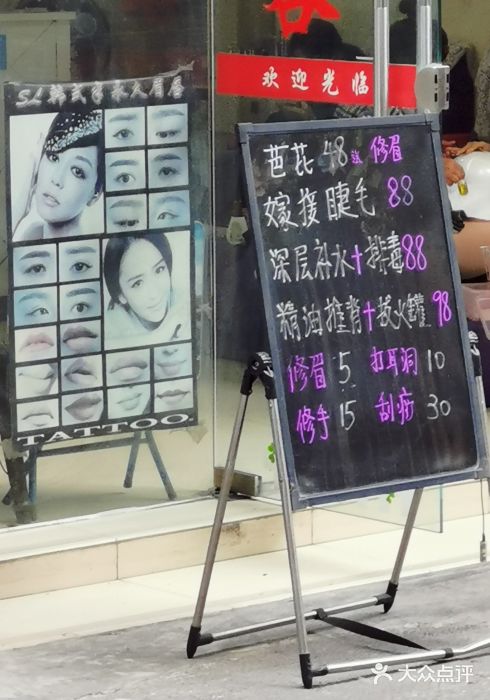 SL韩式半永久眉唇
TATTOO
欢迎光临
芭花 48 送 修眉
嫁接睫毛 88
深层补水+排毒88
精油推背+拔火罐 98
修眉 5 打耳洞 10
修手 15 刮痧 30
大众点评